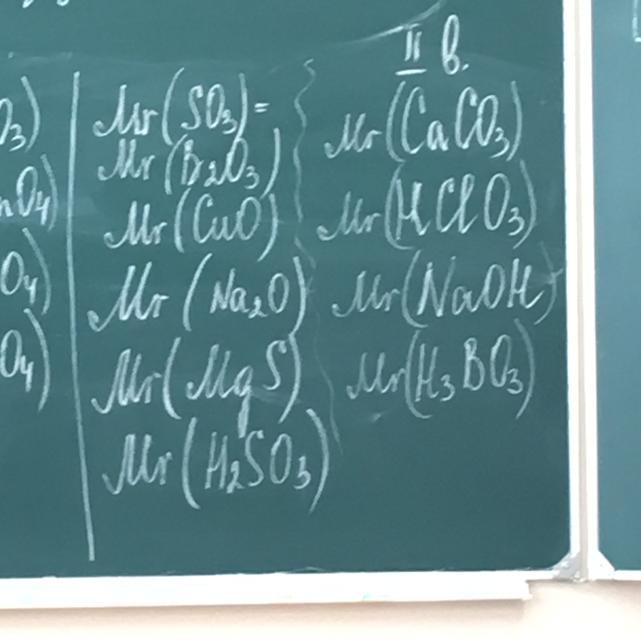 O₃)
nO₄)
O₄)
O₄)
Mr(SO₃)=
Mr(B₂O₃)
Mr(CuO)
Mr(Na₂O)
Mr(MgS)
Mr(H₂SO₃)
II в.
Mr(CaCO₃)
Mr(HClO₃)
Mr(NaOH)
Mr(H₃BO₃)